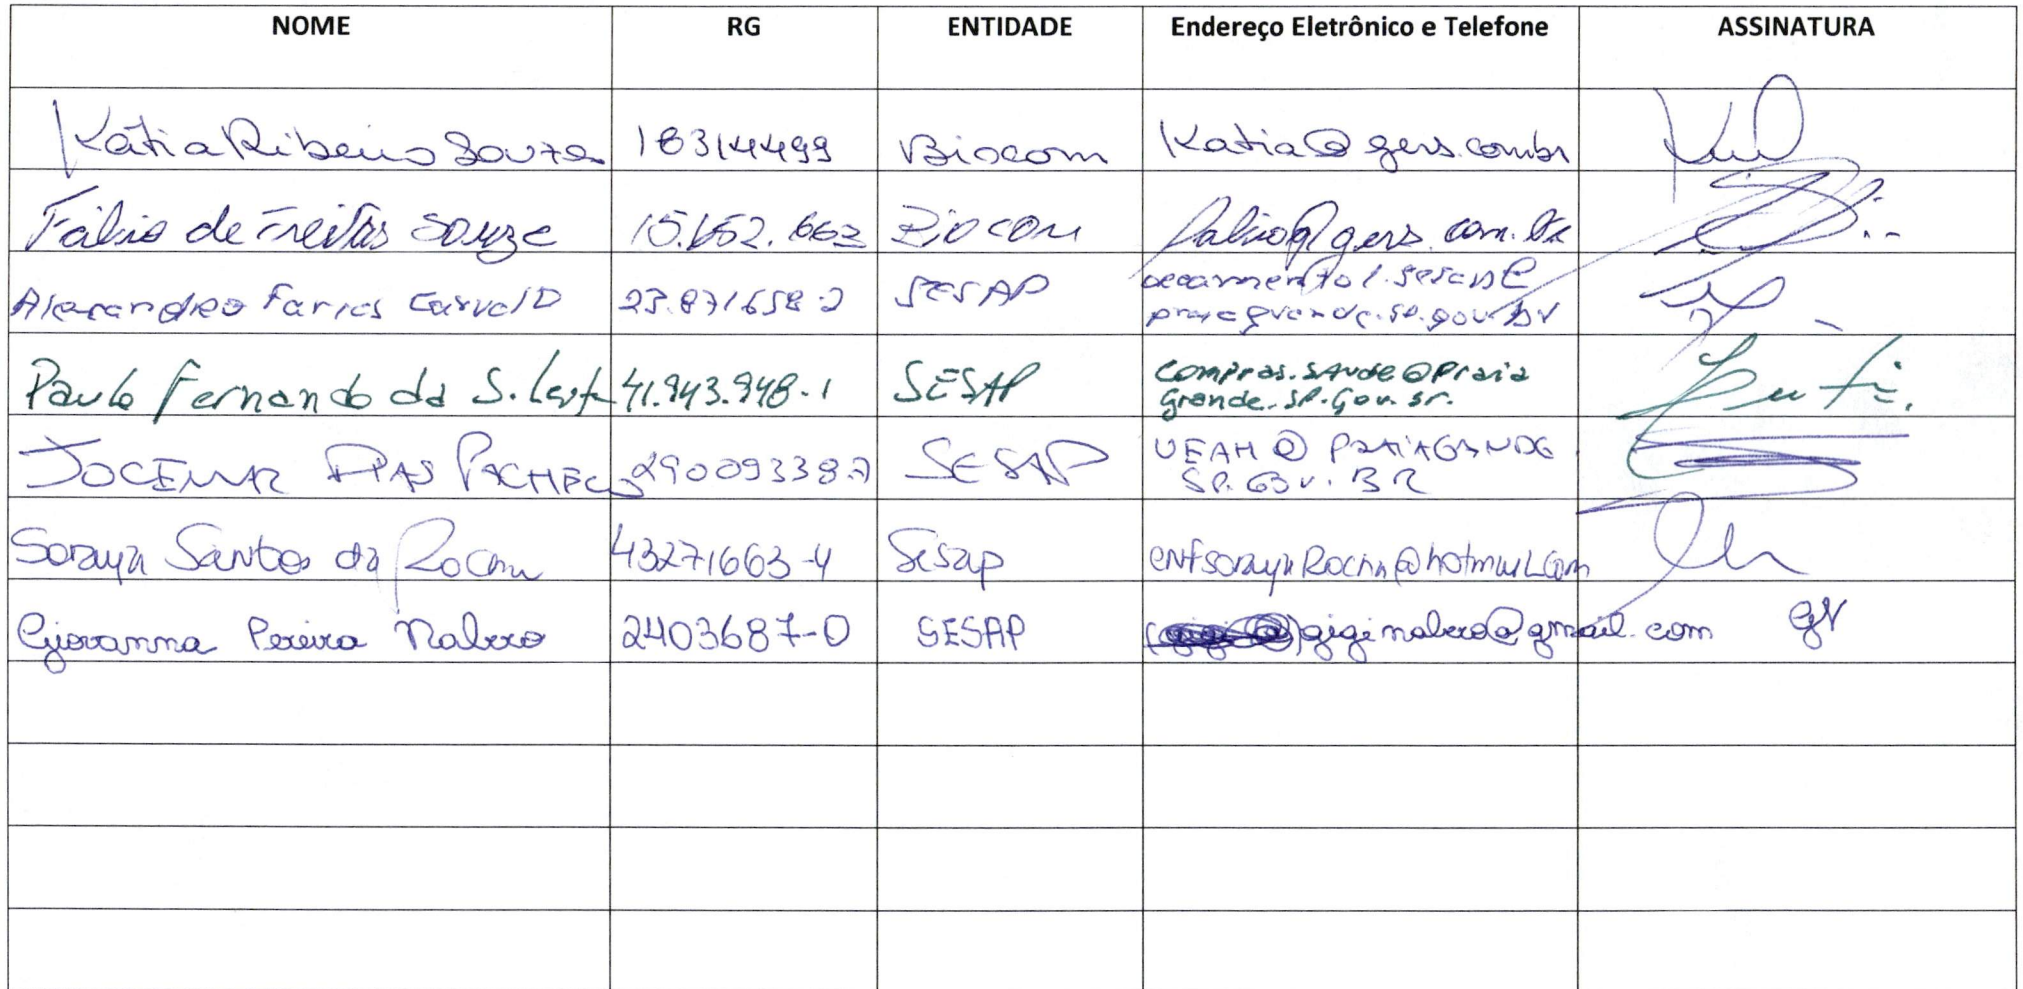 NOME RG ENTIDADE Endereço Eletrônico e Telefone ASSINATURA
Kátia Ribeiro Souza 18314499 Biocom Katia@gers.combr
Fábio de Freitas Souza 15.652.663 Biocom fabio@gers.com.br
Alexandro Farias Carvalo 23.871658-2 SESAP
praiagrande.sp.gov.br
Paulo Fernando da S. 41.943.948-1 SESAP Compras.saude@Praia
Grande.SP.Gov.Br.
JOCEMAR DIAS PACHECO 29009338-7 SESAP UEAH@PRAIAGRANDE
SP.GOV.BR
Soraya Santos da Rocha 43271663-4 Sesap enfsorayaRocha@hotmail.com
Giovanna Pereira Nabero 2403687-0 SESAP giginabero@gmail.com GN